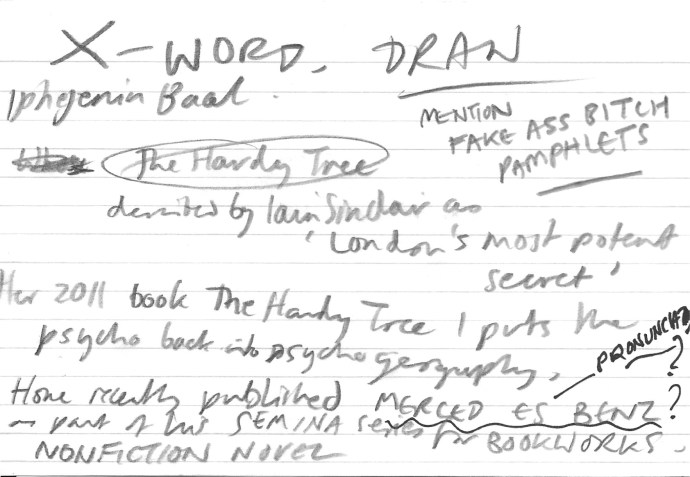 X-WORD. DRAN
Iphegenin Baal.
MENTION
FAKE ASS BITCH
PAMPHLETS
The Hardy Tree
described by Iain Sinclair as
'London's most potent
secret'
Her 2011 book The Hardy Tree / puts the
psycho back into psychogeography.
PRONUNCED?
Home recently published MERCED ES BENZ?
– part of his SEMINA series for BOOKWORKS.
NONFICTION NOVEL